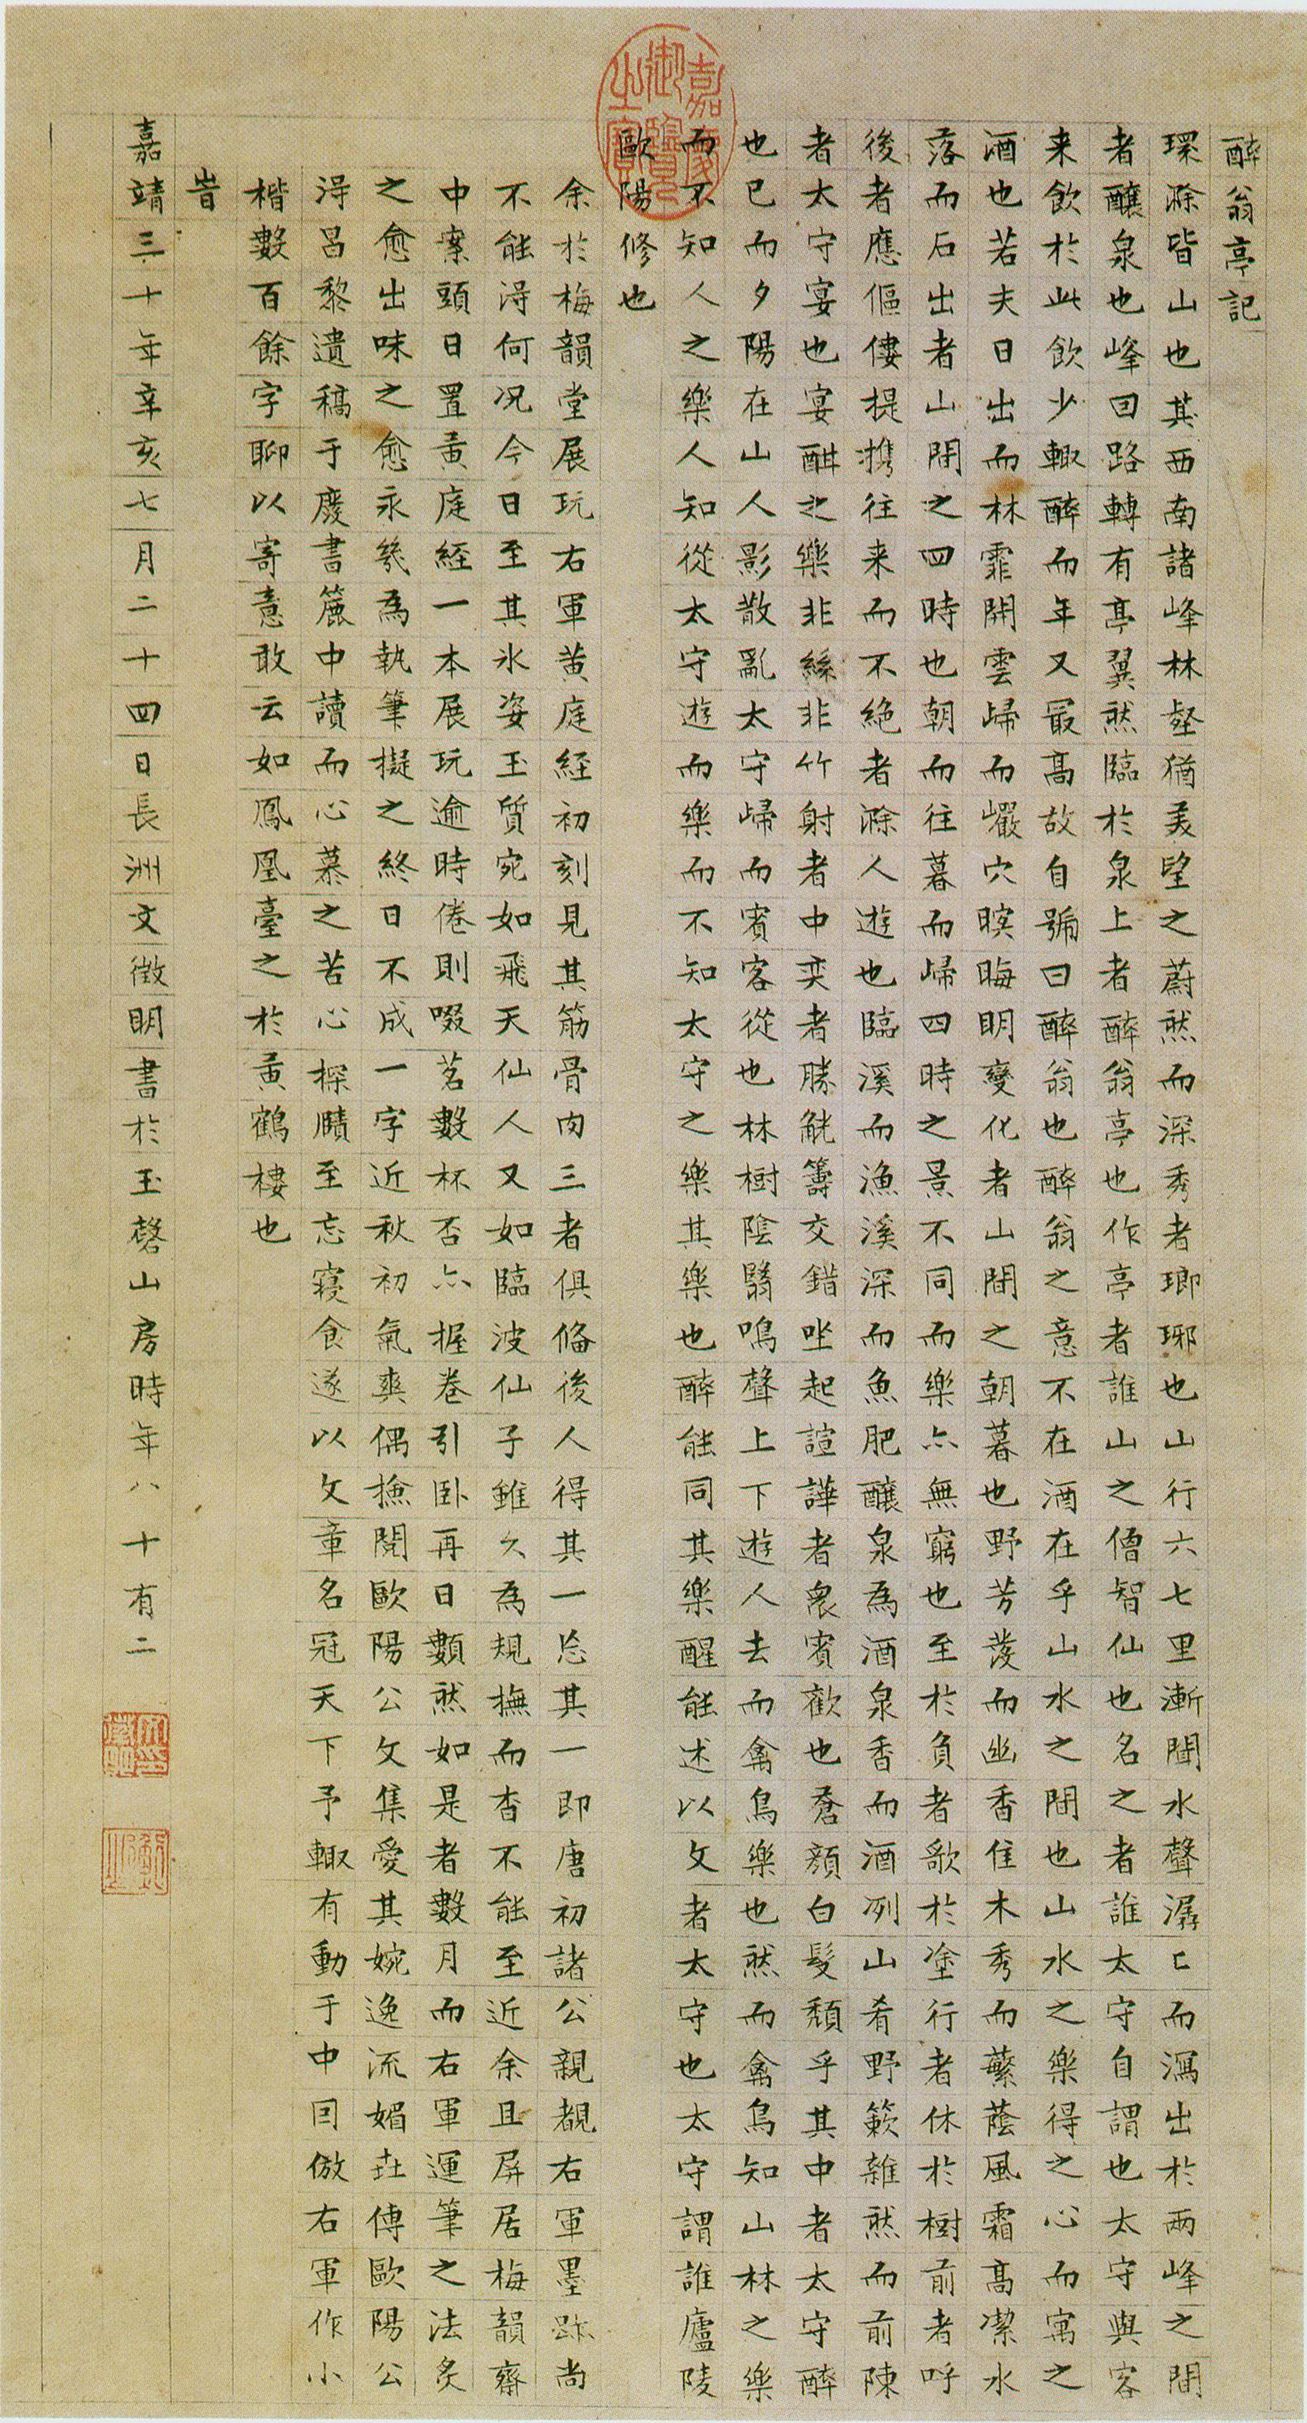 醉翁亭記
環滁皆山也其西南諸峰林壑猶美望之蔚然而深秀者瑯琊也山行六七里漸聞水聲潺〻而瀉出於兩峰之間
者釀泉也峰回路轉有亭翼然臨於泉上者醉翁亭也作亭者誰山之僧智仙也名之者誰太守自謂也太守與客
来飲於此飲少輙醉而年又最高故自號曰醉翁也醉翁之意不在酒在乎山水之間也山水之樂得之心而寓之
酒也若夫日出而林霏開雲歸而巖穴暝晦明變化者山間之朝暮也野芳發而幽香佳木秀而蘩蔭風霜高潔水
落而石出者山間之四時也朝而往暮而歸四時之景不同而樂亦無窮也至於負者歌於塗行者休於樹前者呼
後者應傴僂提攜往来而不絶者滁人遊也臨溪而漁溪深而魚肥釀泉為酒泉香而酒冽山肴野簌雜然而前陳
者太守宴也宴酣之樂非絲非竹射者中奕者勝觥籌交錯坐起諠譁者衆賓歡也蒼顏白髮頹乎其中者太守醉
也已而夕陽在山人影散亂太守歸而賓客從也林樹陰翳鳴聲上下遊人去而禽鳥樂也然而禽鳥知山林之樂
而不知人之樂人知從太守遊而樂而不知太守之樂其樂也醉能同其樂醒能述以文者太守也太守謂誰廬陵
歐陽修也
余於梅韻堂展玩右軍黃庭経初刻見其筋骨肉三者俱俻後人得其一忘其一即唐初諸公親覩右軍墨跡尚
不能淂何况今日至其氷姿玉質宛如飛天仙人又如臨波仙子雖久為規撫而杳不能至近余且屏居梅韻齋
中案頭日置黃庭経一本展玩逾時倦則啜茗數杯否亦握卷引卧再日數然如是者數月而右軍運筆之法炙
之愈出味之愈永裁為執筆擬之終日不成一字近秋初氣爽偶撿閱歐陽公文集愛其婉逸流媚因傳歐陽公
淂昌黎遺稿于廢書簏中讀而心慕之苦心探賾至忘寝食遂以文章名冠天下予輙有動于中囙倣右軍作小
楷數百餘字聊以寄意敢云如鳳凰臺之於黃鶴樓也
旹
嘉靖三十年辛亥七月二十四日長洲文徵明書於玉磬山房時年八十有二
嘉慶御覽之寶